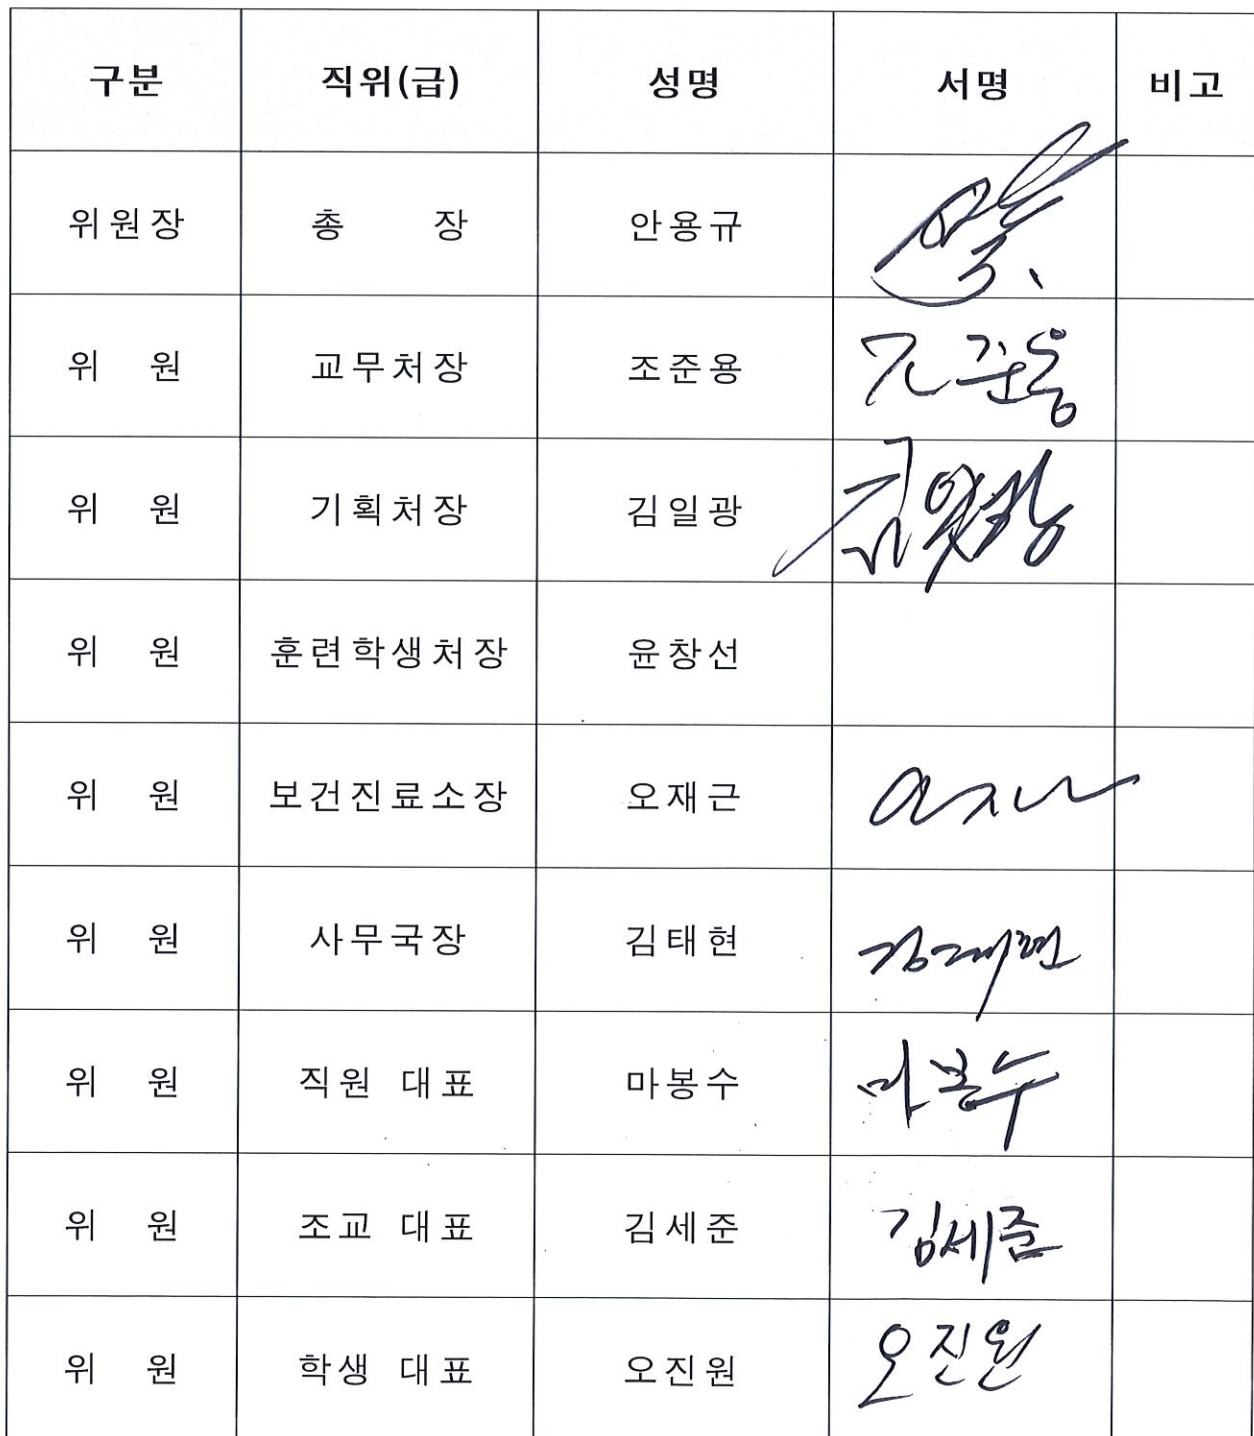 구분 직위(급) 성명 서명 비고
위원장 총 장 안용규
위 원 교무처장 조준용 조준용
위 원 기획처장 김일광 김일광
위 원 훈련학생처장 윤창선
위 원 보건진료소장 오재근
위 원 사무국장 김태현 김태현
위 원 직원 대표 마봉수 마봉수
위 원 조교 대표 김세준 김세준
위 원 학생 대표 오진원 오진원